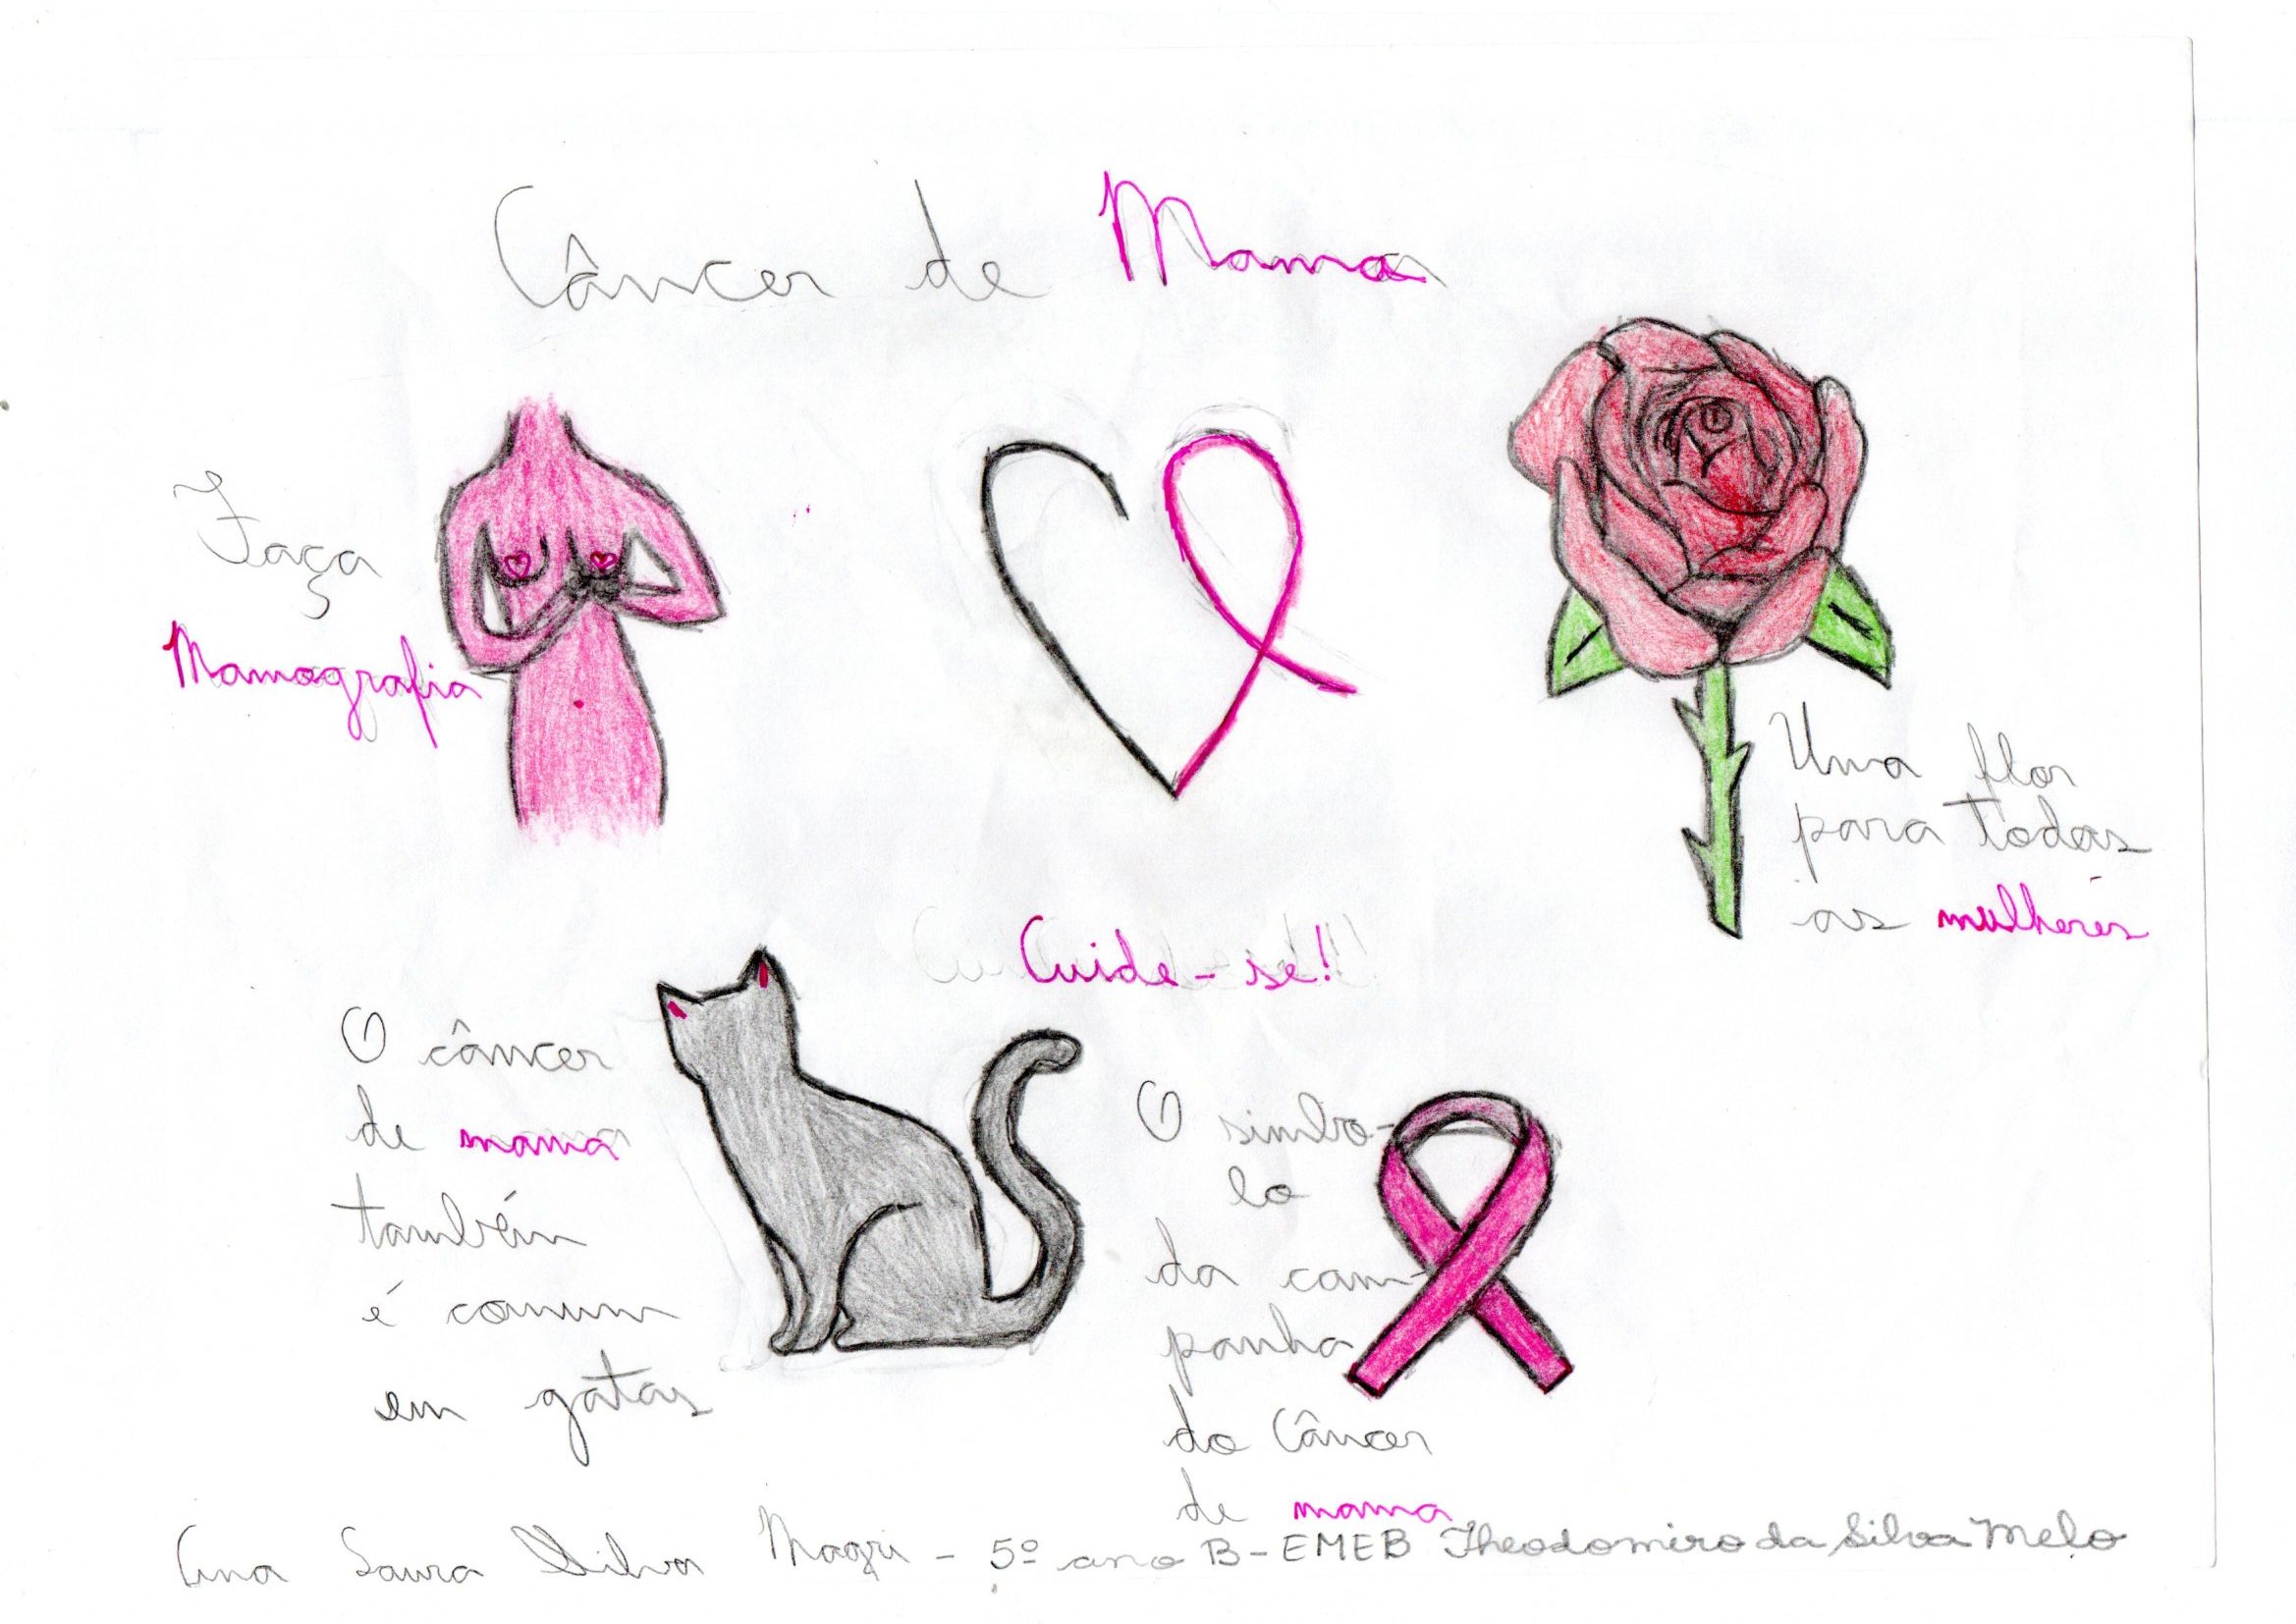 Câncer de Mama
Faça
Mamografia
Uma flor
para todas
as mulheres
Cuide-se!
O câncer
de mama
também
é comum
em gatas
O simbo-
lo
da cam-
panha
do Câncer
de mama
Ana Laura Silva Magri - 5º ano B - EMEB Theodomiro da Silva Melo